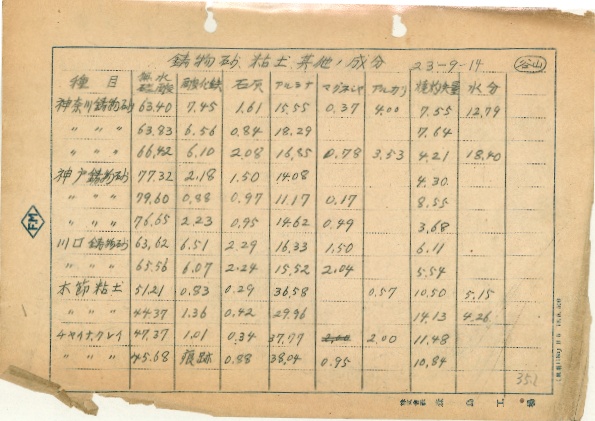 鋳物砂、粘土、其他ノ成分 23-9-14 谷山
種目 無水硅酸 酸化鉄 石灰 アルミナ マグネシヤ アルカリ 灼灼失量 水分
神奈川鋳物砂 63.40 7.45 1.61 15.55 0.37 4.00 7.55 12.79
〃 〃 〃 63.83 6.56 0.84 18.29 7.64
〃 〃 〃 66.42 6.10 2.08 16.85 0.78 3.53 4.21 18.40
神戸鋳物砂 77.32 2.18 1.50 14.08 4.30
〃 〃 〃 79.60 0.88 0.97 11.17 0.17 8.55
〃 〃 〃 76.65 2.23 0.95 14.62 0.49 3.68
川口鋳物砂 63.62 6.51 2.29 16.33 1.50 6.11
〃 〃 〃 65.56 6.07 2.24 15.52 2.04 5.54
木節粘土 51.21 0.83 0.29 36.58 0.57 10.50 5.15
〃 〃 〃 44.37 1.36 0.42 29.96 14.13 4.26
チャイナ.クレイ 47.37 1.01 0.34 37.77 2.00 2.00 11.48
〃 〃 〃 45.68 痕跡 0.88 38.04 0.95 10.84
352
FM